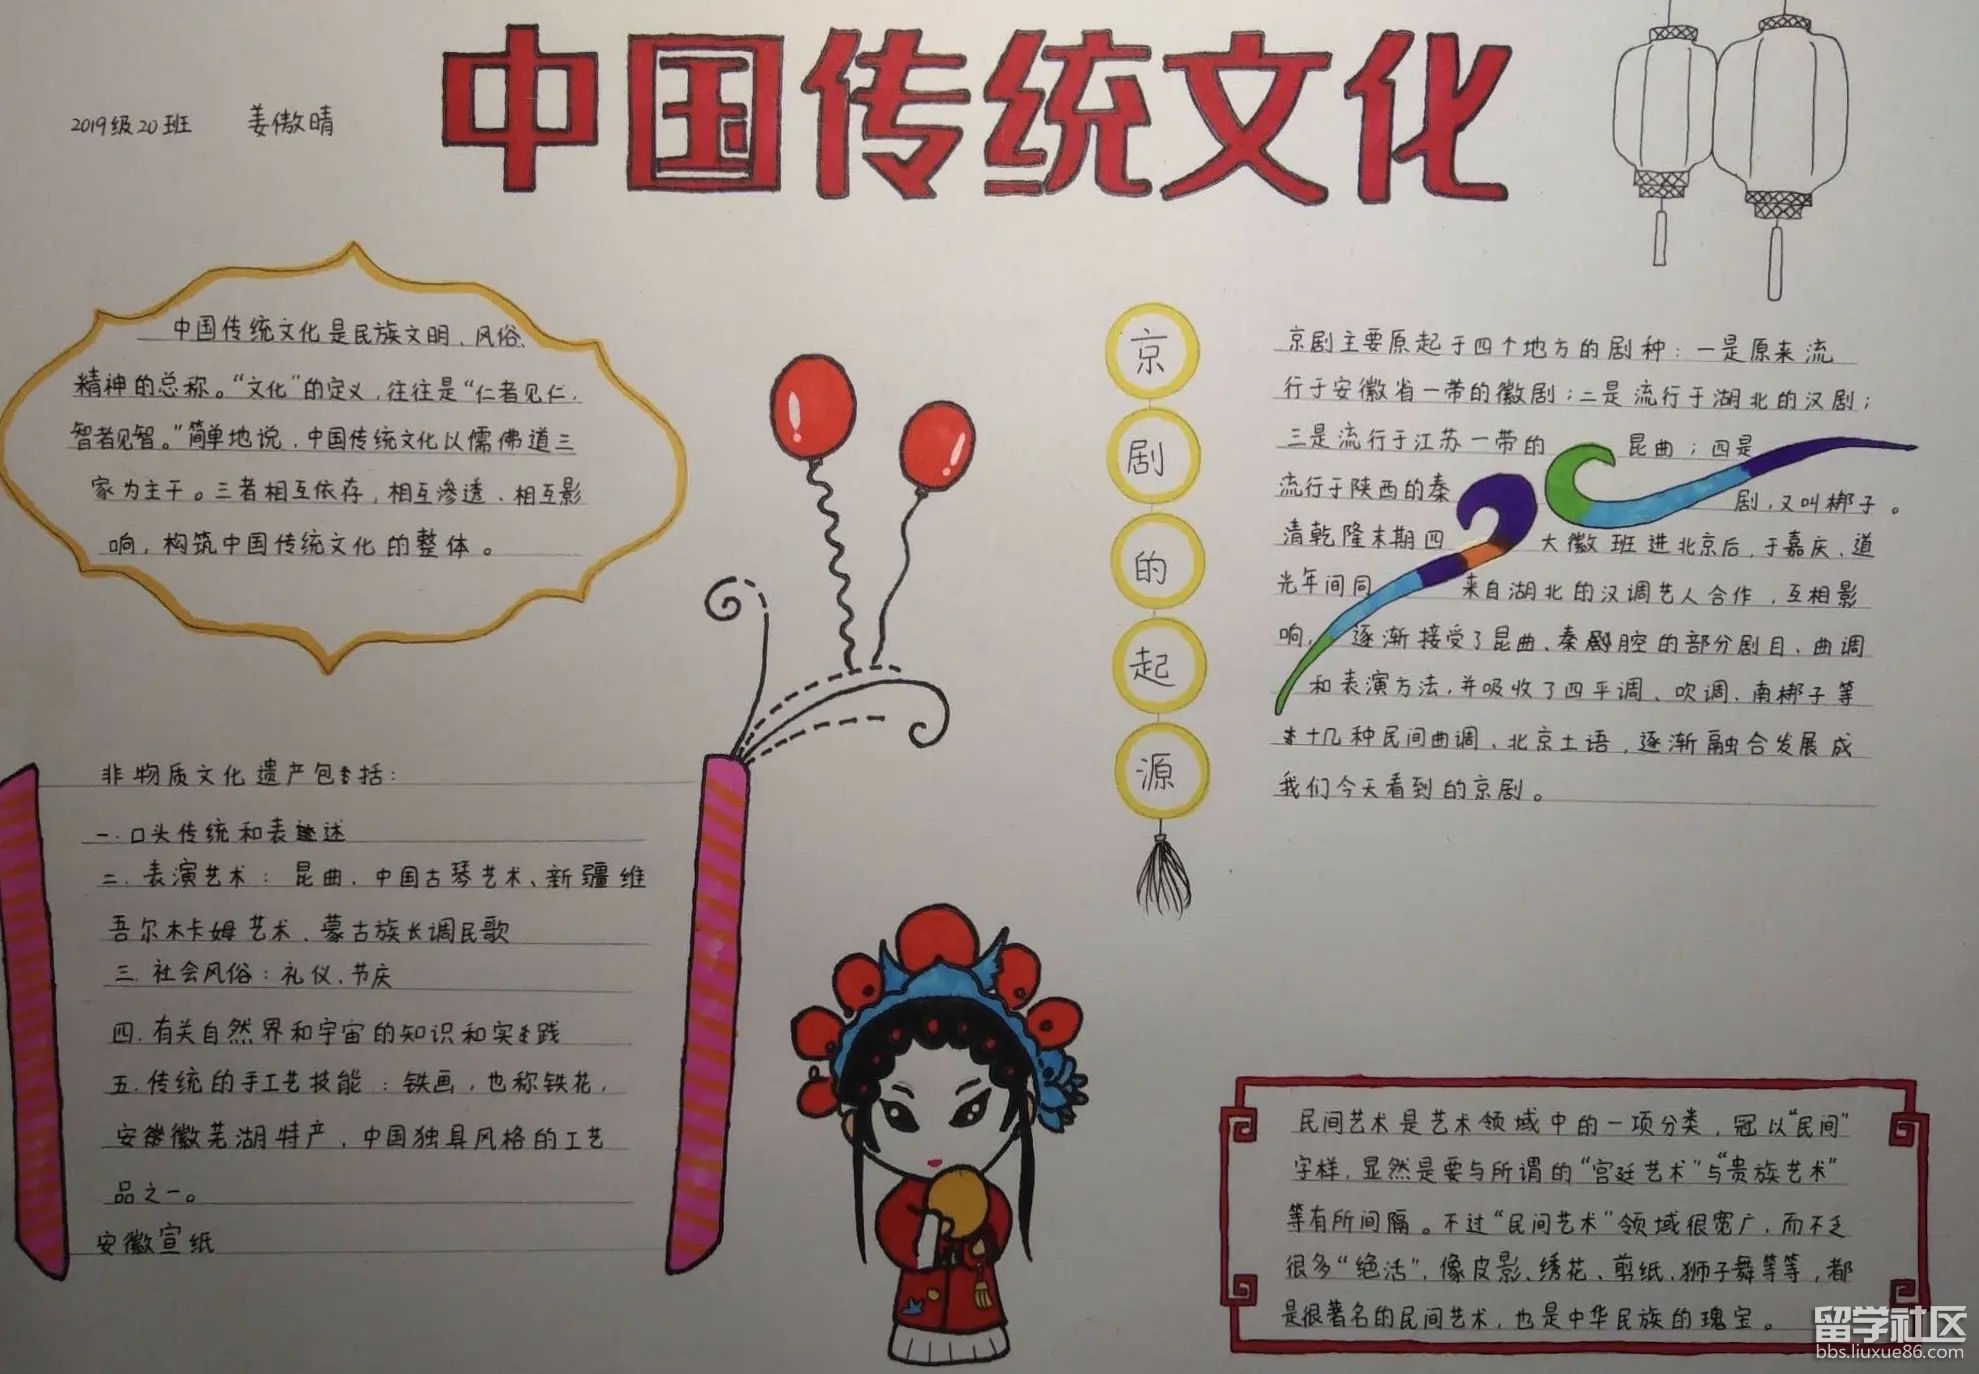 中国传统文化
2019级20班 姜傲晴
中国传统文化是民族文明、风俗、
精神的总称。“文化”的定义,往往是“仁者见仁,
智者见智。”简单地说,中国传统文化以儒佛道三
家为主干。三者相互依存,相互渗透、相互影
响,构筑中国传统文化的整体。
非物质文化遗产包括:
一.口头传统和表述
二.表演艺术:昆曲、中国古琴艺术、新疆维
吾尔木卡姆艺术、蒙古族长调民歌
三.社会风俗:礼仪、节庆
四.有关自然界和宇宙的知识和实践
五.传统的手工艺技能:铁画,也称铁花,
安徽芜湖特产,中国独具风格的工艺
品之一。
安徽宣纸
京剧的起源
京剧主要原起于四个地方的剧种:一是原来流
行于安徽省一带的徽剧;二是流行于湖北的汉剧;
三是流行于江苏一带的昆曲;四是
流行于陕西的秦剧,又叫梆子。
清乾隆末期四大徽班进北京后,于嘉庆、道
光年间同来自湖北的汉调艺人合作,互相影
响,逐渐接受了昆曲、秦腔的部分剧目、曲调
和表演方法,并吸收了四平调、吹调、南梆子等
十几种民间曲调、北京土语,逐渐融合发展成
我们今天看到的京剧。
民间艺术是艺术领域中的一项分类,冠以“民间”
字样,显然是要与所谓的“宫廷艺术”与“贵族艺术”
等有所间隔。不过“民间艺术”领域很宽广,而不乏
很多“绝活”,像皮影、绣花、剪纸、狮子舞等等,都
是很著名的民间艺术,也是中华民族的瑰宝。
留学社区
bbs.liuxue86.com